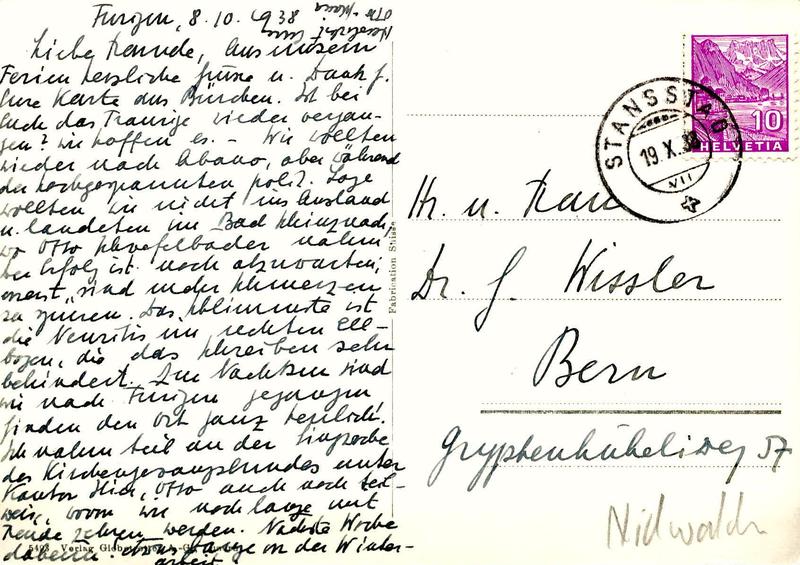 Furigen, 8.10.1938
Liebe Freunde, Aus unseren
Ferien herzliche Grüsse u. Dank f.
Eure Karte aus Bürchen. Ist bei
Euch das Traurige wieder vergan-
gen? wir hoffen es. – Wir wollten
wieder nach Abano, aber während
der hochgespannten polit. Lage
wollten wir nicht ins Ausland
u. landeten im Bad Schinznach,
wo Otto Schwefelbäder nahm
der Erfolg ist noch abzuwarten,
zuerst sind mehr Schmerzen
zu spüren. Das schlimmste ist
die Neuritis im rechten Ell-
bogen, die das schreiben sehr
behindert. Zur Nachkur sind
wir nach Furigen gegangen,
finden den Ort ganz herrlich!
Ich nahm teil an der Singwoche
des Kirchengesangsbundes unter
Kantor Stier, Otto auch noch teil-
weis, wovon wir noch lange mit
Freude zehren werden. Nächste Woche
daheim an der Winter-
arbeit
Otto
Maria
Herzlichst
5403 Verlag Globetrotter
Fabrication Suisse
STANSSTAD
19.X.38
VII
10
HELVETIA
Hr. u. Frau
Dr. J. Wissler
Bern
Gryphenhübeliweg 57
Nidwalden